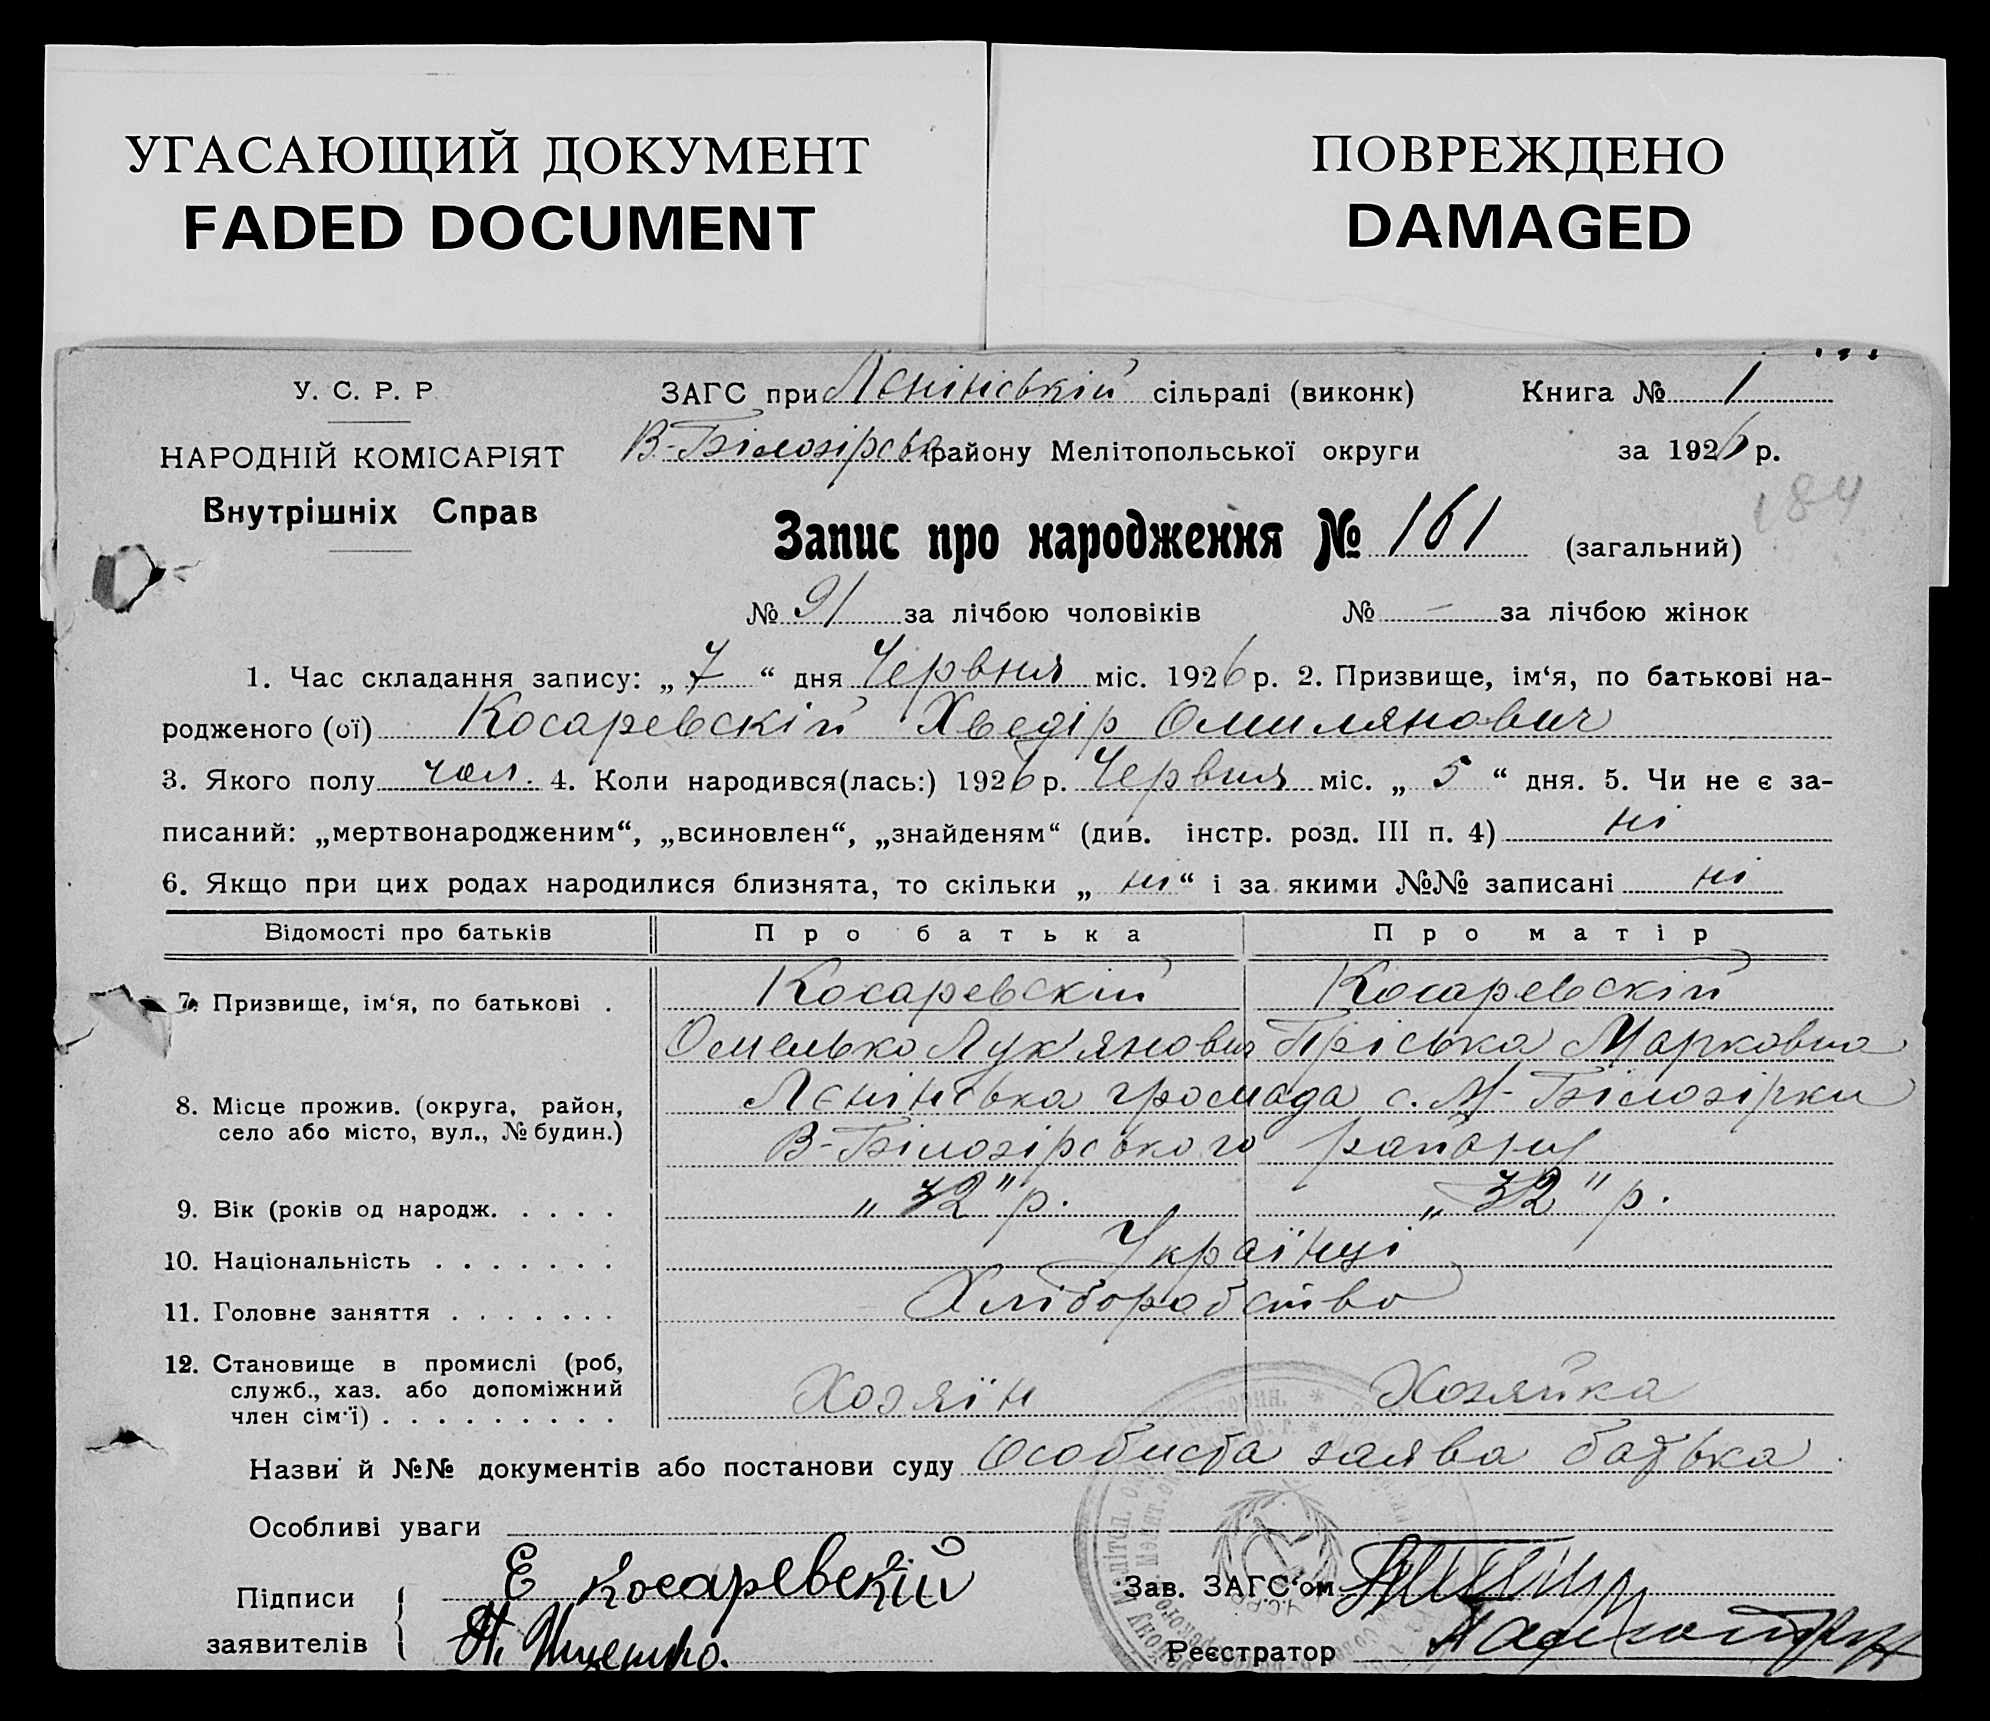 УГАСАЮЩИЙ ДОКУМЕНТ
FADED DOCUMENT
ПОВРЕЖДЕНО
DAMAGED
У. С. Р. Р
НАРОДНІЙ КОМІСАРІЯТ
Внутрішніх Справ
ЗАГС при Ленінській сільраді (виконк)
Книга № 1
В-Білозірськ району Мелітопольської округи
за 1926 р.
184
Запис про народження № 161 (загальний)
№ 91 за лічбою чоловіків № — за лічбою жінок
1. Час складання запису: „ 7 “ дня Червня міс. 1926 р. 2. Призвище, ім‘я, по батькові на-
родженого (ої) Косаревскій Хведір Омилянович
3. Якого полу чол. 4. Коли народився(лась:) 1926 р. Червня міс. „ 5 “ дня. 5. Чи не є за-
писаний: „мертвонародженим“, „всиновлен“, „знайденям“ (див. інстр. розд. III п. 4) ні
6. Якщо при цих родах народилися близнята, то скільки „ ні “ і за якими №№ записані ні
Відомості про батьків Про батька Про матір
7. Призвище, ім‘я, по батькові . Косаревскій Косаревскій
Омелько Лук'янович Пріська Марковна
8. Місце прожив. (округа, район, село або місто, вул., № будин.) Ленінська громада с. М-Білозірки
В-Білозірського району
9. Вік (років од народж. . . . . „ 32 " р. „ 32 " р.
10. Національність . . . . . . . Українці
11. Головне заняття . . . . . . . Хлібробство
12. Становище в промислі (роб,
служб., хаз. або допоміжний
член сім‘ї) . . . . . . . . . Хозяїн Хозяйка
Назви й №№ документів або постанови суду Особиста заява батька
Особливі уваги
Підписи
заявителів
Е Косаревскій
Зав. ЗАГС‘ом
Реєстратор